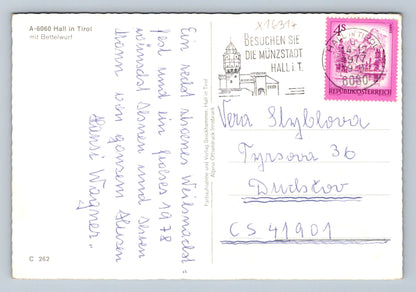 A-6060 Hall in Tirol
mit Bettelwurf
Ein recht schönes Weihnacht
fest und ein frohes 1978
wünscht Ihnen und Ihren
Lieben von ganzem Herzen
Hansi Wagner.
C 262
Farbaufnahme und Verlag Stockhammer, Hall in Tirol
Alpina Offsetdruck Innsbruck
BESUCHEN SIE
DIE MÜNZSTADT
HALL i.T.
4S
REPUBLIK ÖSTERREICH
Vera Styblova
Tyrsova 36
Dudslov
CS 41901